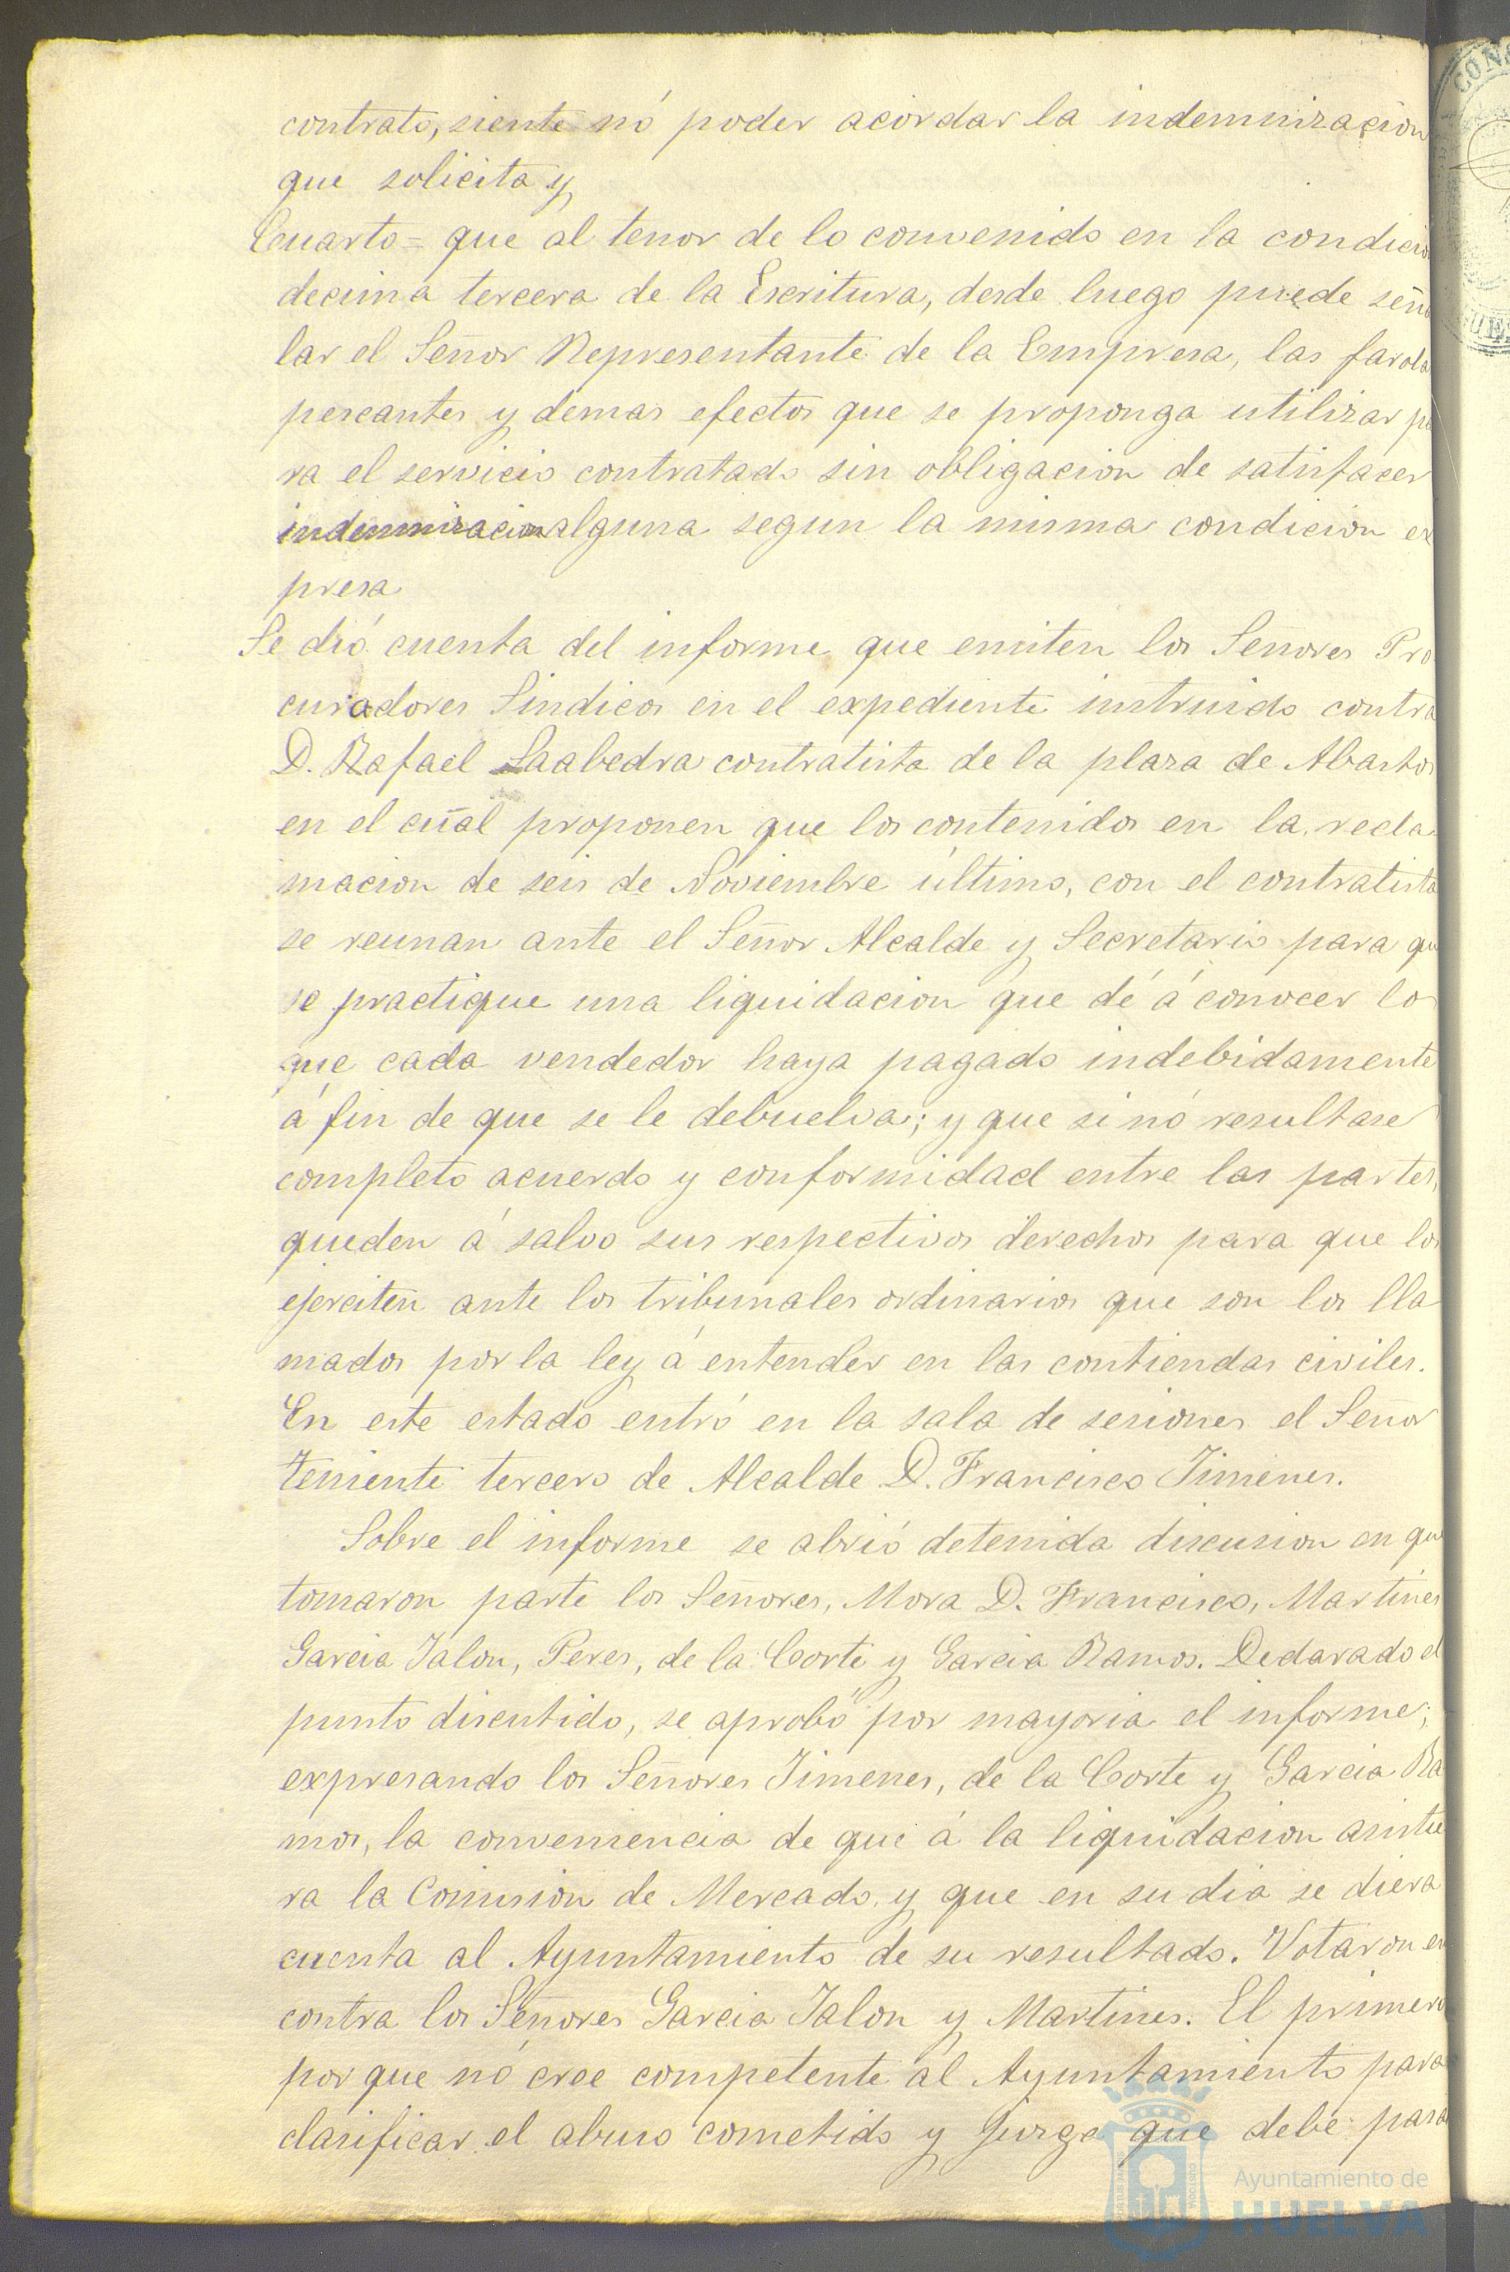 contrato, siente nó poder acordar la indemnizacion
que solicita y
Cuarto = que al tenor de lo convenido en la condicion
decima tercera de la Escritura, desde luego puede seña
lar el Señor Representante de la Empresa, las farolas
pescantes y demas efectos que se proponga utilizar pa
ra el servicio contratado sin obligacion de satisfacer
indemnizacion alguna segun la misma condicion ex
presa
Se dió cuenta del informe que emiten los Señores Pro
curadores Sindicos en el expediente instruido contra
D. Rafael Saabedra contratista de la plaza de Abastos
en el cual proponen que los contenidos en la recla
macion de seis de Noviembre último, con el contratista
se reunan ante el Señor Alcalde y Secretario para que
se practique una liquidacion que dé á conocer lo
que cada vendedor haya pagado indebidamente
á fin de que se le debuelva; y que si nó resultase
completo acuerdo y conformidad entre las partes,
queden á salvo sus respectivos derechos para que los
ejerciten ante los tribunales ordinarios que son los lla
mados por la ley á entender en las contiendas civiles.
En este estado entró en la sala de sesiones el Señor
Teniente tercero de Alcalde D. Francisco Jimenes.
Sobre el informe se abrió detenida discusion en que
tomaron parte los Señores, Mora D. Francisco, Martines
Garcia Jalon, Peres, de la Corte y Garcia Ramos. Declarado el
punto discutido, se aprobó por mayoria el informe;
expresando los Señores Jimenes, de la Corte y Garcia Ra
mos, la conveniencia de que á la liquidacion asistie
ra la Comision de Mercado y que en su dia se diera
cuenta al Ayuntamiento de su resultado. Votaron en
contra los Señores Garcia Jalon y Martines. El primero
por que nó cree competente al Ayuntamiento para
clasificar el abuso cometido y juzga que debe pasar
Ayuntamiento de
HUELVA